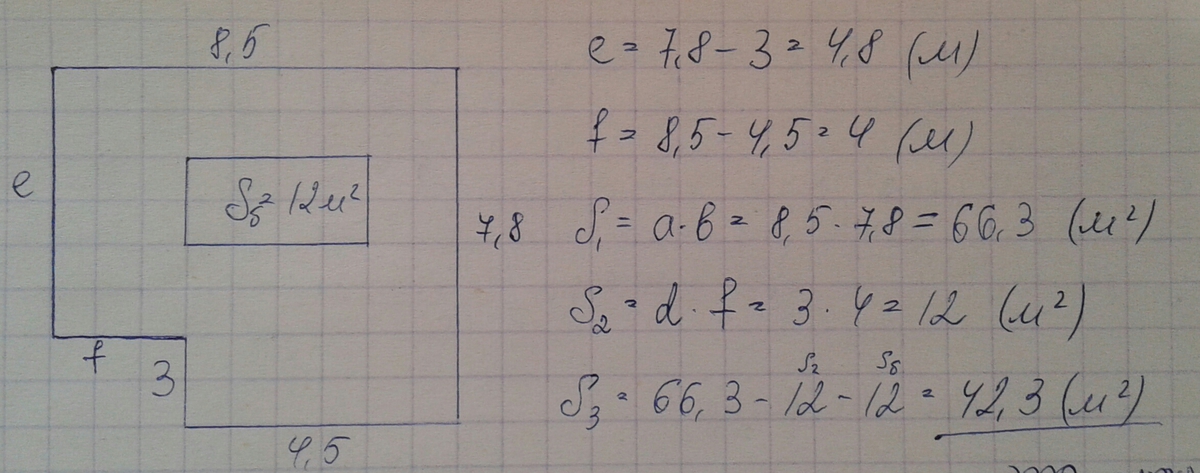 8,5
e
S_б = 12 м²
7,8
f
3
4,5
e = 7,8 - 3 = 4,8 (м)
f = 8,5 - 4,5 = 4 (м)
S₁ = a · b = 8,5 · 7,8 = 66,3 (м²)
S₂ = d · f = 3 · 4 = 12 (м²)
S₂ S_б
S₃ = 66,3 - 12 - 12 = 42,3 (м²)